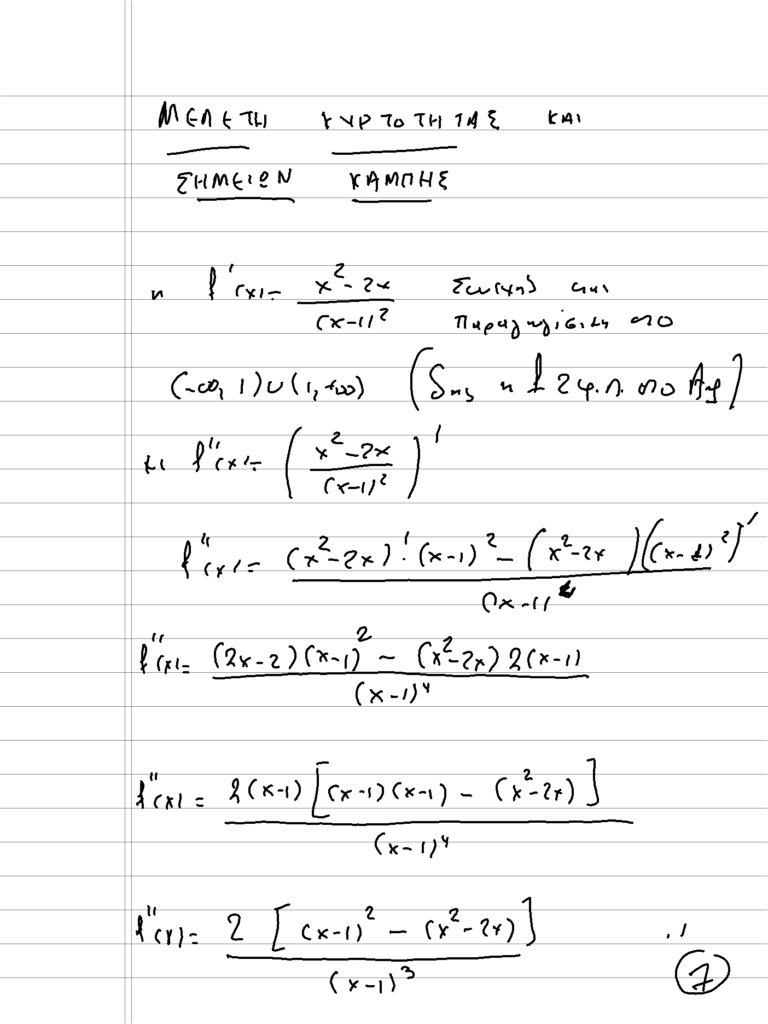 ΜΕΛΕΤΗ ΚΥΡΤΟΤΗΤΑΣ ΚΑΙ
ΣΗΜΕΙΩΝ ΚΑΜΠΗΣ
η f'(x)= (x²-2x)/(x-1)² Συνεχής και
Παραγωγίσιμη στο
(-∞, 1)∪(1,+∞) (δηλ η f 2φ.π. στο Af)
κι f''(x)= ((x²-2x)/(x-1)²)'
f''(x)= ((x²-2x)'·(x-1)²-(x²-2x)((x-1)²)')/(x-1)⁴
f''(x)= ((2x-2)(x-1)² - (x²-2x)2(x-1))/(x-1)⁴
f''(x)= 2(x-1)[(x-1)(x-1) - (x²-2x)]/(x-1)⁴
f''(x)= 2[(x-1)² - (x²-2x)]/(x-1)³ ./
7